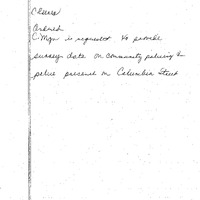 Ordered
C. Mgr is requested to provide
survey data on community policing &
police presence on Columbia Street